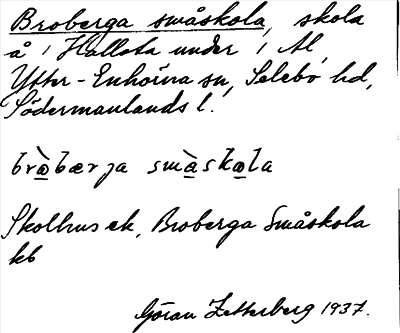 Broberga småskola, skola
å 1 Hallsta under 1 Al,
Ytter-Enhörna sn, Selebo hd,
Södermanlands l.
bròbærja smàskola
Skolhus ek, Broberga Småskola
kb
Göran Zetterberg 1937.